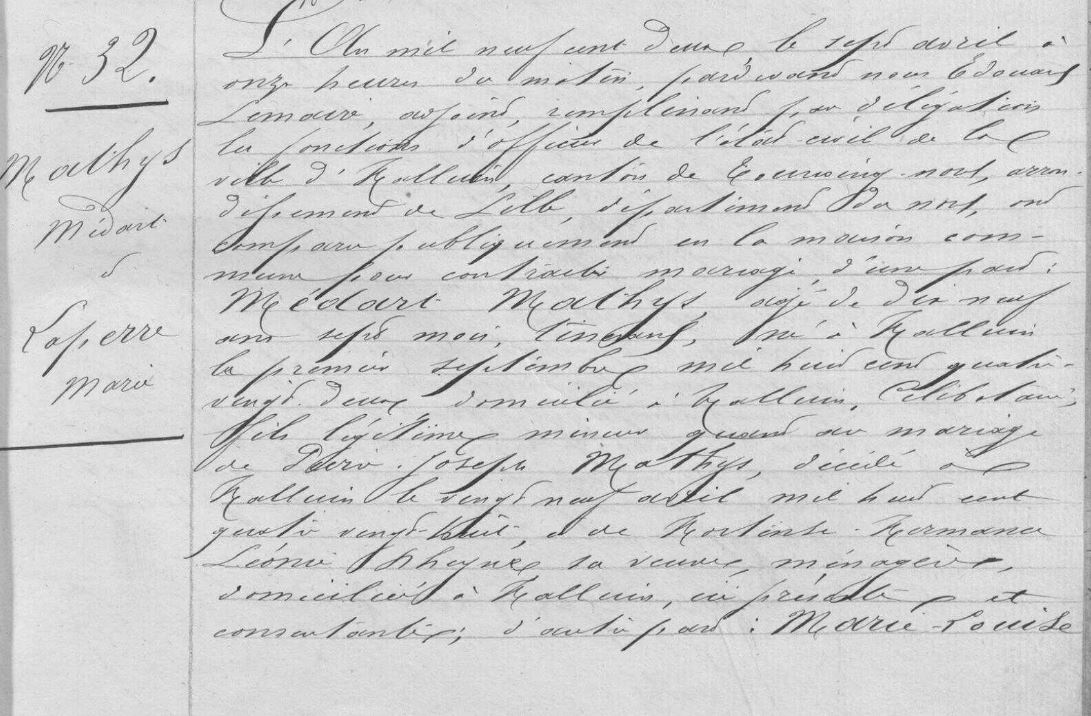 N° 32.
Mathys
Médart
&
Laperre
Marie
L'An mil neuf cent deux le sept avril à
onze heures du matin, pardevant nous Edouard
Lemaire, adjoint, remplissant par délégation
les fonctions d'officier de l'état civil de la
ville d'Halluin, canton de Tourcoing-nord, arron-
dissement de Lille, département du nord, ont
comparu publiquement en la maison com-
mune pour contracter mariage d'une part :
Médart Mathys, âgé de dix neuf
ans sept mois, tisserand, né à Halluin
le premier septembre mil huit cent quatre-
vingt-deux domicilié à Halluin, Célibataire,
fils légitime mineur quant au mariage
de Joseph Mathys, décédé à
Halluin le vingt neuf avril mil huit cent
quatre vingt-huit, & de Hortense-Hermance
Léonie sa veuve, ménagère,
domiciliée à Halluin, ici présente et
consentante; d'autre part : Marie-Louise